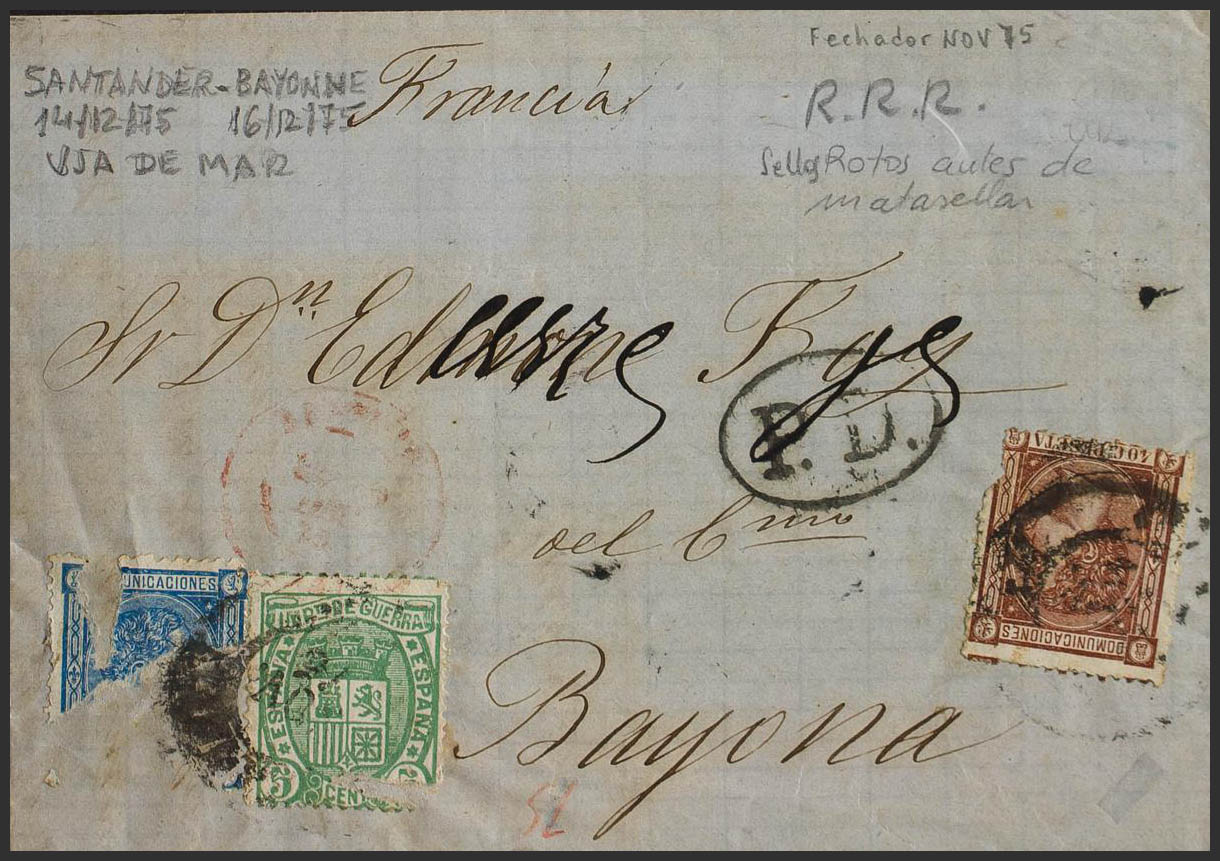 Fechador NOV 75
SANTANDER-BAYONNE
14/12/75 16/12/75
VIA DE MAR
Francia
R.R.R.
Sellos Rotos antes de
matasellar
Sr Dn
P.D.
del Cmo
Bayona
40 C. PESETA
COMUNICACIONES
UNICACIONES
IMPTO DE GUERRA
ESPAÑA
ESPAÑA
5 CEN